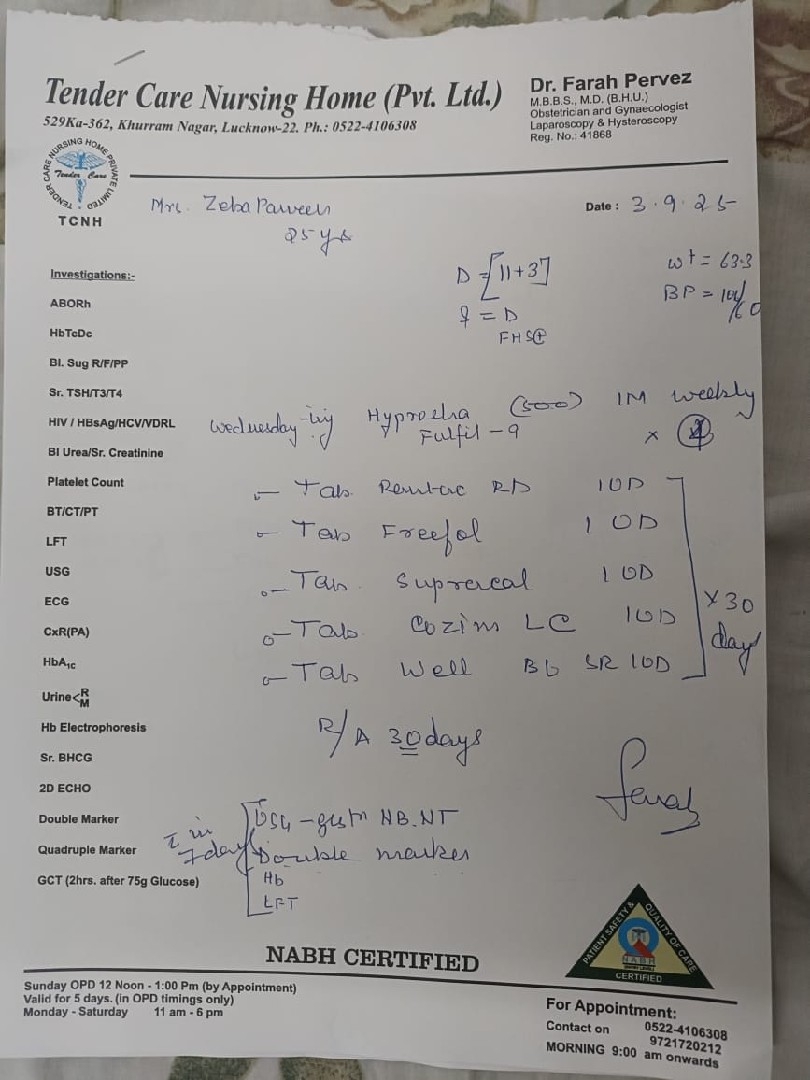 Tender Care Nursing Home (Pvt. Ltd.)
529Ka-362, Khurram Nagar, Lucknow-22. Ph.: 0522-4106308
Dr. Farah Pervez
M.B.B.S., M.D. (B.H.U.)
Obstetrician and Gynaecologist
Laparoscopy & Hysteroscopy
Reg. No.: 41868
TENDER CARE NURSING HOME PRIVATE LIMITED
Tender Care
TCNH
Mrs. Zeba Parveen
25 ys
Date : 3.9.25
D = 11+3
wt = 63.3
BP =
= D
FHS
Investigations:-
ABORh
HbTcDc
Bl. Sug R/F/PP
Sr. TSH/T3/T4
HIV / HBsAg/HCV/VDRL
Wednesday Inj (500) IM weekly
Bl Urea/Sr. Creatinine
Fulfil - 9 x
Platelet Count
Tab. RD 1OD
BT/CT/PT
Tab Freefol 1 OD
LFT
USG
Tab. Supracal 1 OD
ECG
x 30 days
CxR(PA)
Tab. Cozim LC 1OD
HbA1c
Tab Well B6 SR 1OD
Urine<R M
Hb Electrophoresis
R/A 30 days
Sr. BHCG
2D ECHO
Double Marker
USG - NB.NT
Quadruple Marker
in 7 days Double marker
GCT (2hrs. after 75g Glucose)
Hb
LFT
NABH CERTIFIED
PATIENT SAFETY & QUALITY OF CARE
NABH
CERTIFIED
Sunday OPD 12 Noon - 1:00 Pm (by Appointment)
Valid for 5 days. (in OPD timings only)
Monday - Saturday 11 am - 6 pm
For Appointment:
Contact on 0522-4106308
9721720212
MORNING 9:00 am onwards